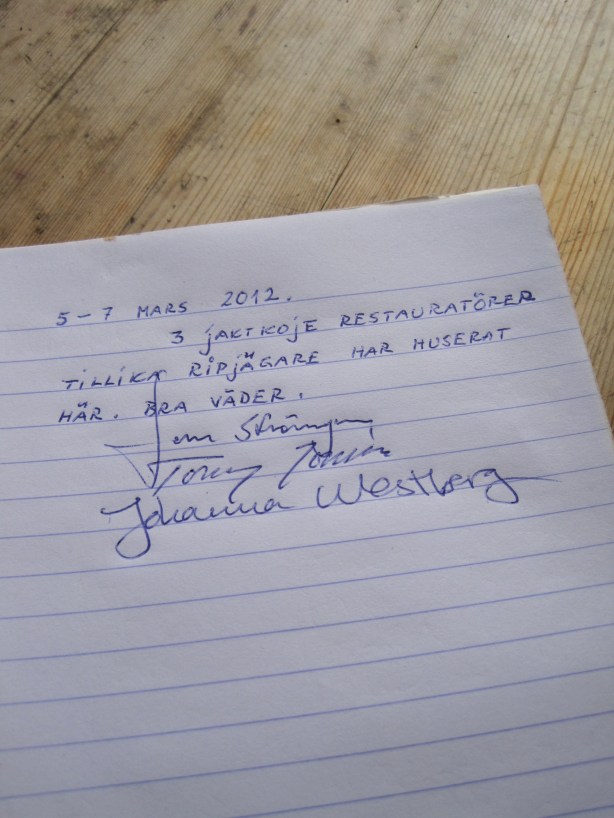 5-7 MARS 2012.
3 jAKTKOJE RESTAURATÖRER
TILLIKA RIPJÄGARE HAR HUSERAT
HÄR. BRA VÄDER.
Tony
Johanna Westberg